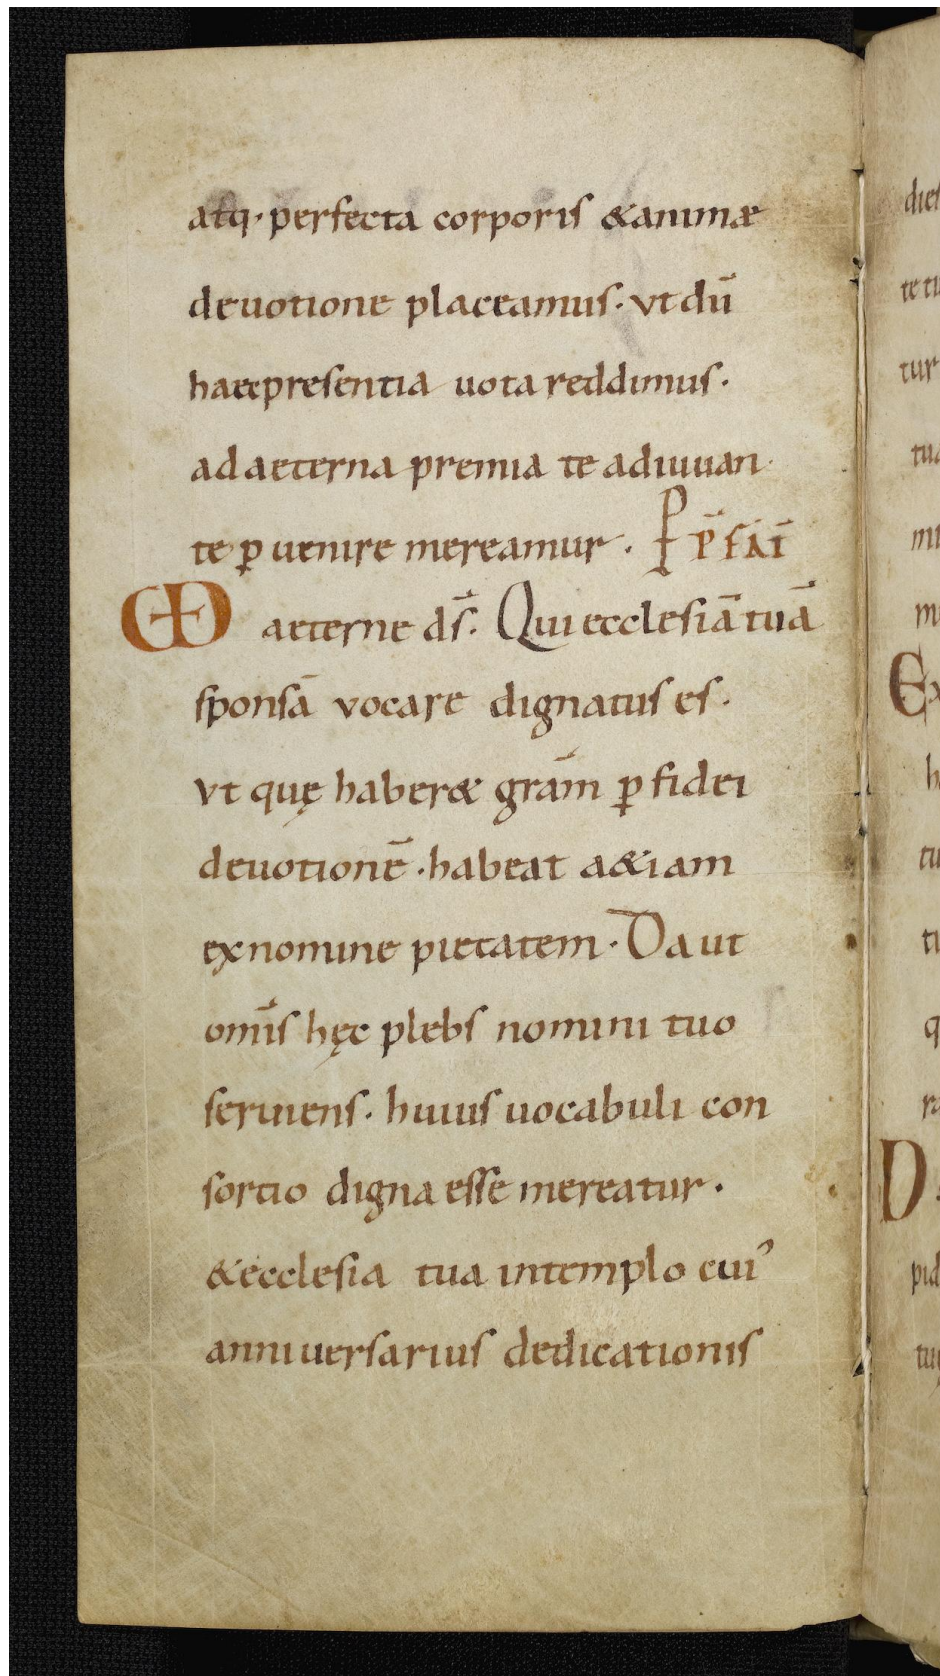 atq· perfecta corporis &animæ
deuotione placeamus· vt dū
haecpresentia uota reddimus·
ad aeterna premia te adiuuan
te ꝑ uenire mereamur·
aeterne ds̄· Qui ecclesiā tuā
sponsā vocare dignatus es·
vt quę haber& grām ꝑ fidei
deuotionē ·habeat a&iam
exnomine pietatem· Da ut
om̄is hęc plebs nomini tuo
seruiens· huius uocabuli con
sortio digna esse mereatur·
&ecclesia tua intemplo cui᾿
anniuersarius dedicationis
dies
te tu
tur
tua
D